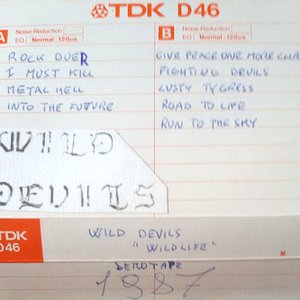 TDK D46
A Noise Reduction
EQ Normal:120µs
B Noise Reduction
EQ Normal:120µs
ROCK OVER
I MUST KILL
METAL HELL
INTO THE FUTURE
GIVE PEACE ONE MORE CHA
FIGHTING DEVILS
LUSTY TYGRESS
ROAD TO LIFE
RUN TO THE SKY
WILD
DEVILS
TDK
D46
WILD DEVILS
"WILDLIFE"
DEMOTAPE
1987